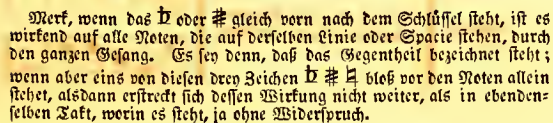 Merk, wenn das ♭ oder ♯ gleich vorn nach dem Schlüssel steht, ist es
wirkend auf alle Noten, die auf derselben Linie oder Spacie stehen, durch
den ganzen Gesang. Es sey denn, daß das Gegentheil bezeichnet steht;
wenn aber eins von diesen drey Zeichen ♭ ♯ ♮ bloß vor den Noten allein
stehet, alsdann erstreckt sich dessen Wirkung nicht weiter, als in ebenden=
selben Takt, worin es steht, ja ohne Widerspruch.